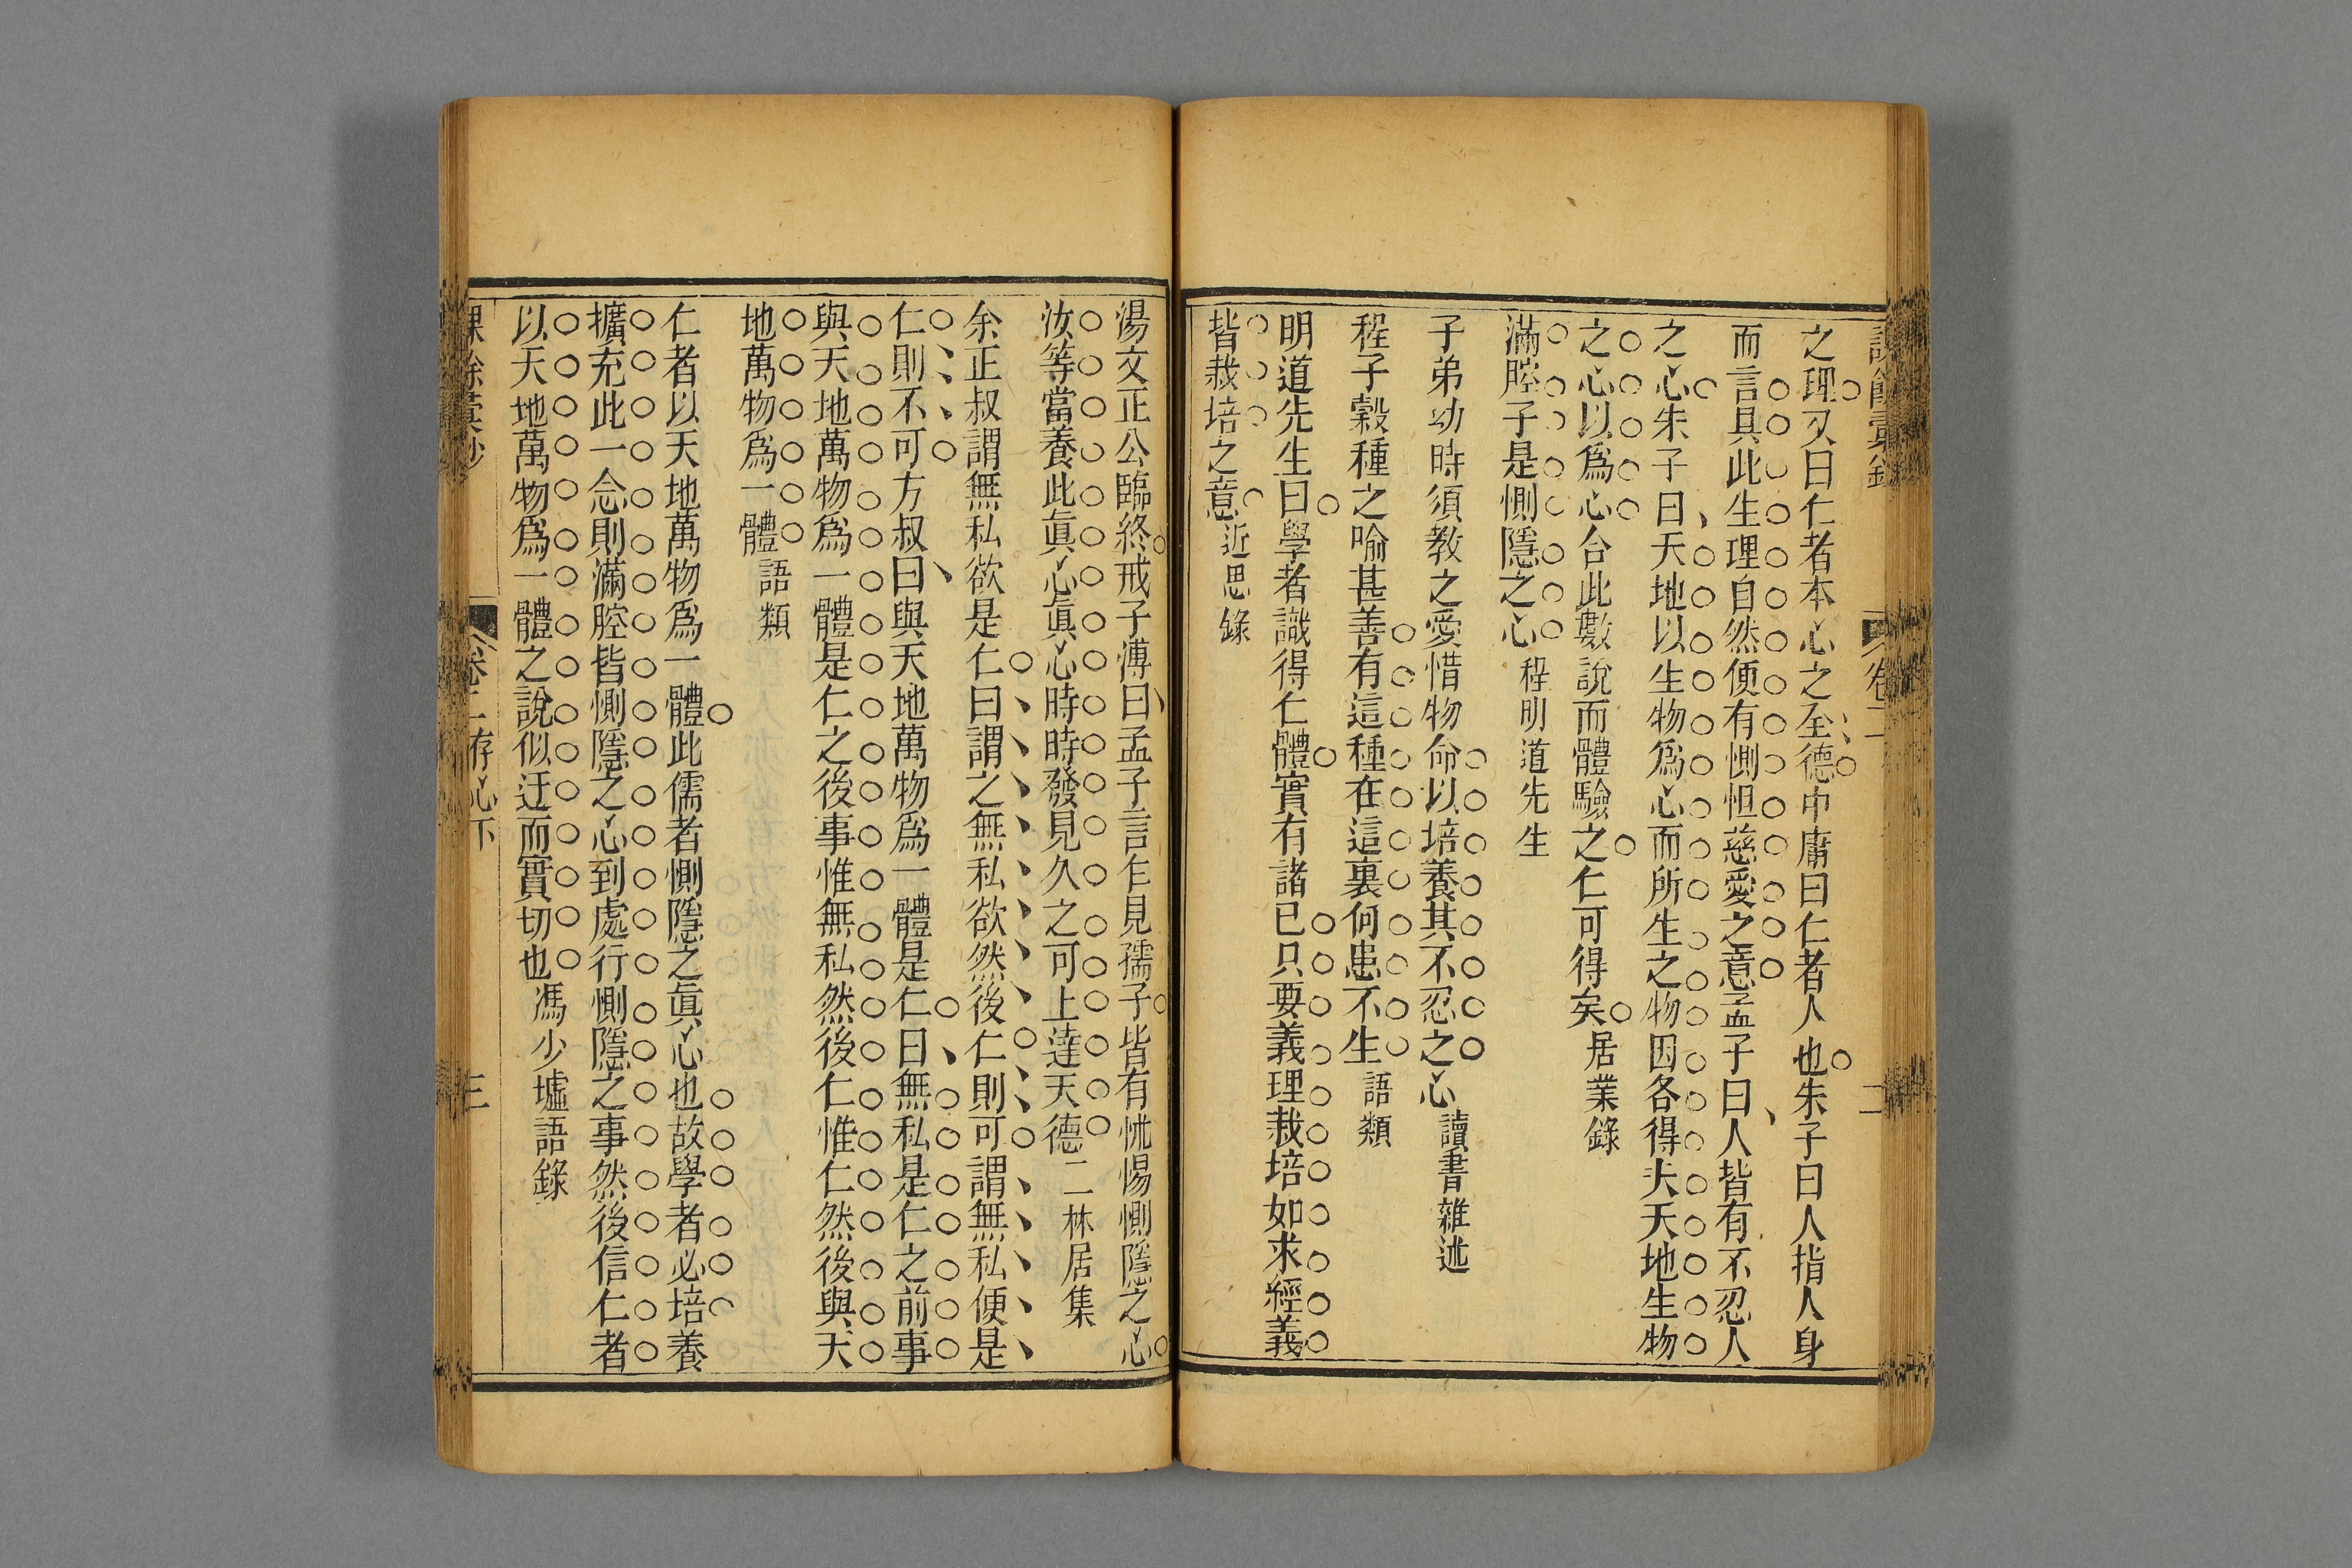 之理又曰仁者本心之全德中庸曰仁者人也朱子曰人指人身
而言具此生理自然便有惻怛慈愛之意孟子曰人皆有不忍人
之心朱子曰天地以生物爲心而所生之物因各得夫天地生物
之心以爲心合此數說而體驗之仁可得矣居業錄
滿腔子是惻隱之心程明道先生
子弟幼時須教之愛惜物命以培養其不忍之心讀書雜述
程子穀種之喻甚善有這種在這裏何患不生語類
明道先生曰學者識得仁體實有諸已只要義理栽培如求經義
皆栽培之意近思錄
湯文正公臨終戒子溥曰孟子言乍見孺子皆有怵惕惻隱之心
汝等當養此眞心眞心時時發見久之可上達天德二林居集
余正叔謂無私欲是仁曰謂之無私欲然後仁則可謂無私便是
仁則不可方叔曰與天地萬物爲一體是仁曰無私是仁之前事
與天地萬物爲一體是仁之後事惟無私然後仁惟仁然後與天
地萬物爲一體語類
仁者以天地萬物爲一體此儒者惻隱之眞心也故學者必培養
擴充此一念則滿腔皆惻隱之心到處行惻隱之事然後信仁者
以天地萬物爲一體之說似迂而實切也馮少墟語錄
卷二 存心下 三